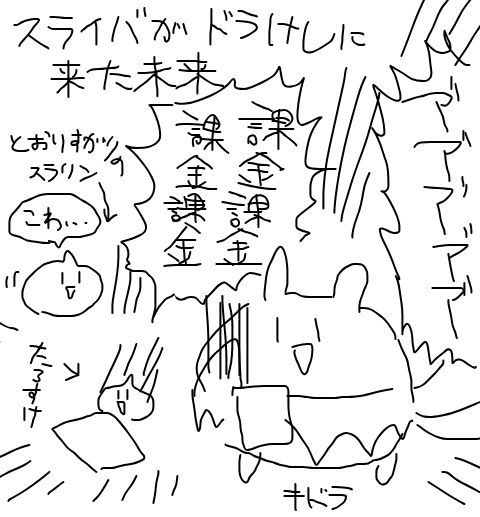 スライバがドラけしに
来た未来
課金
課金
課金
課金
とおりすがりの
スラリン
こわ…
たろすけ
キドラ